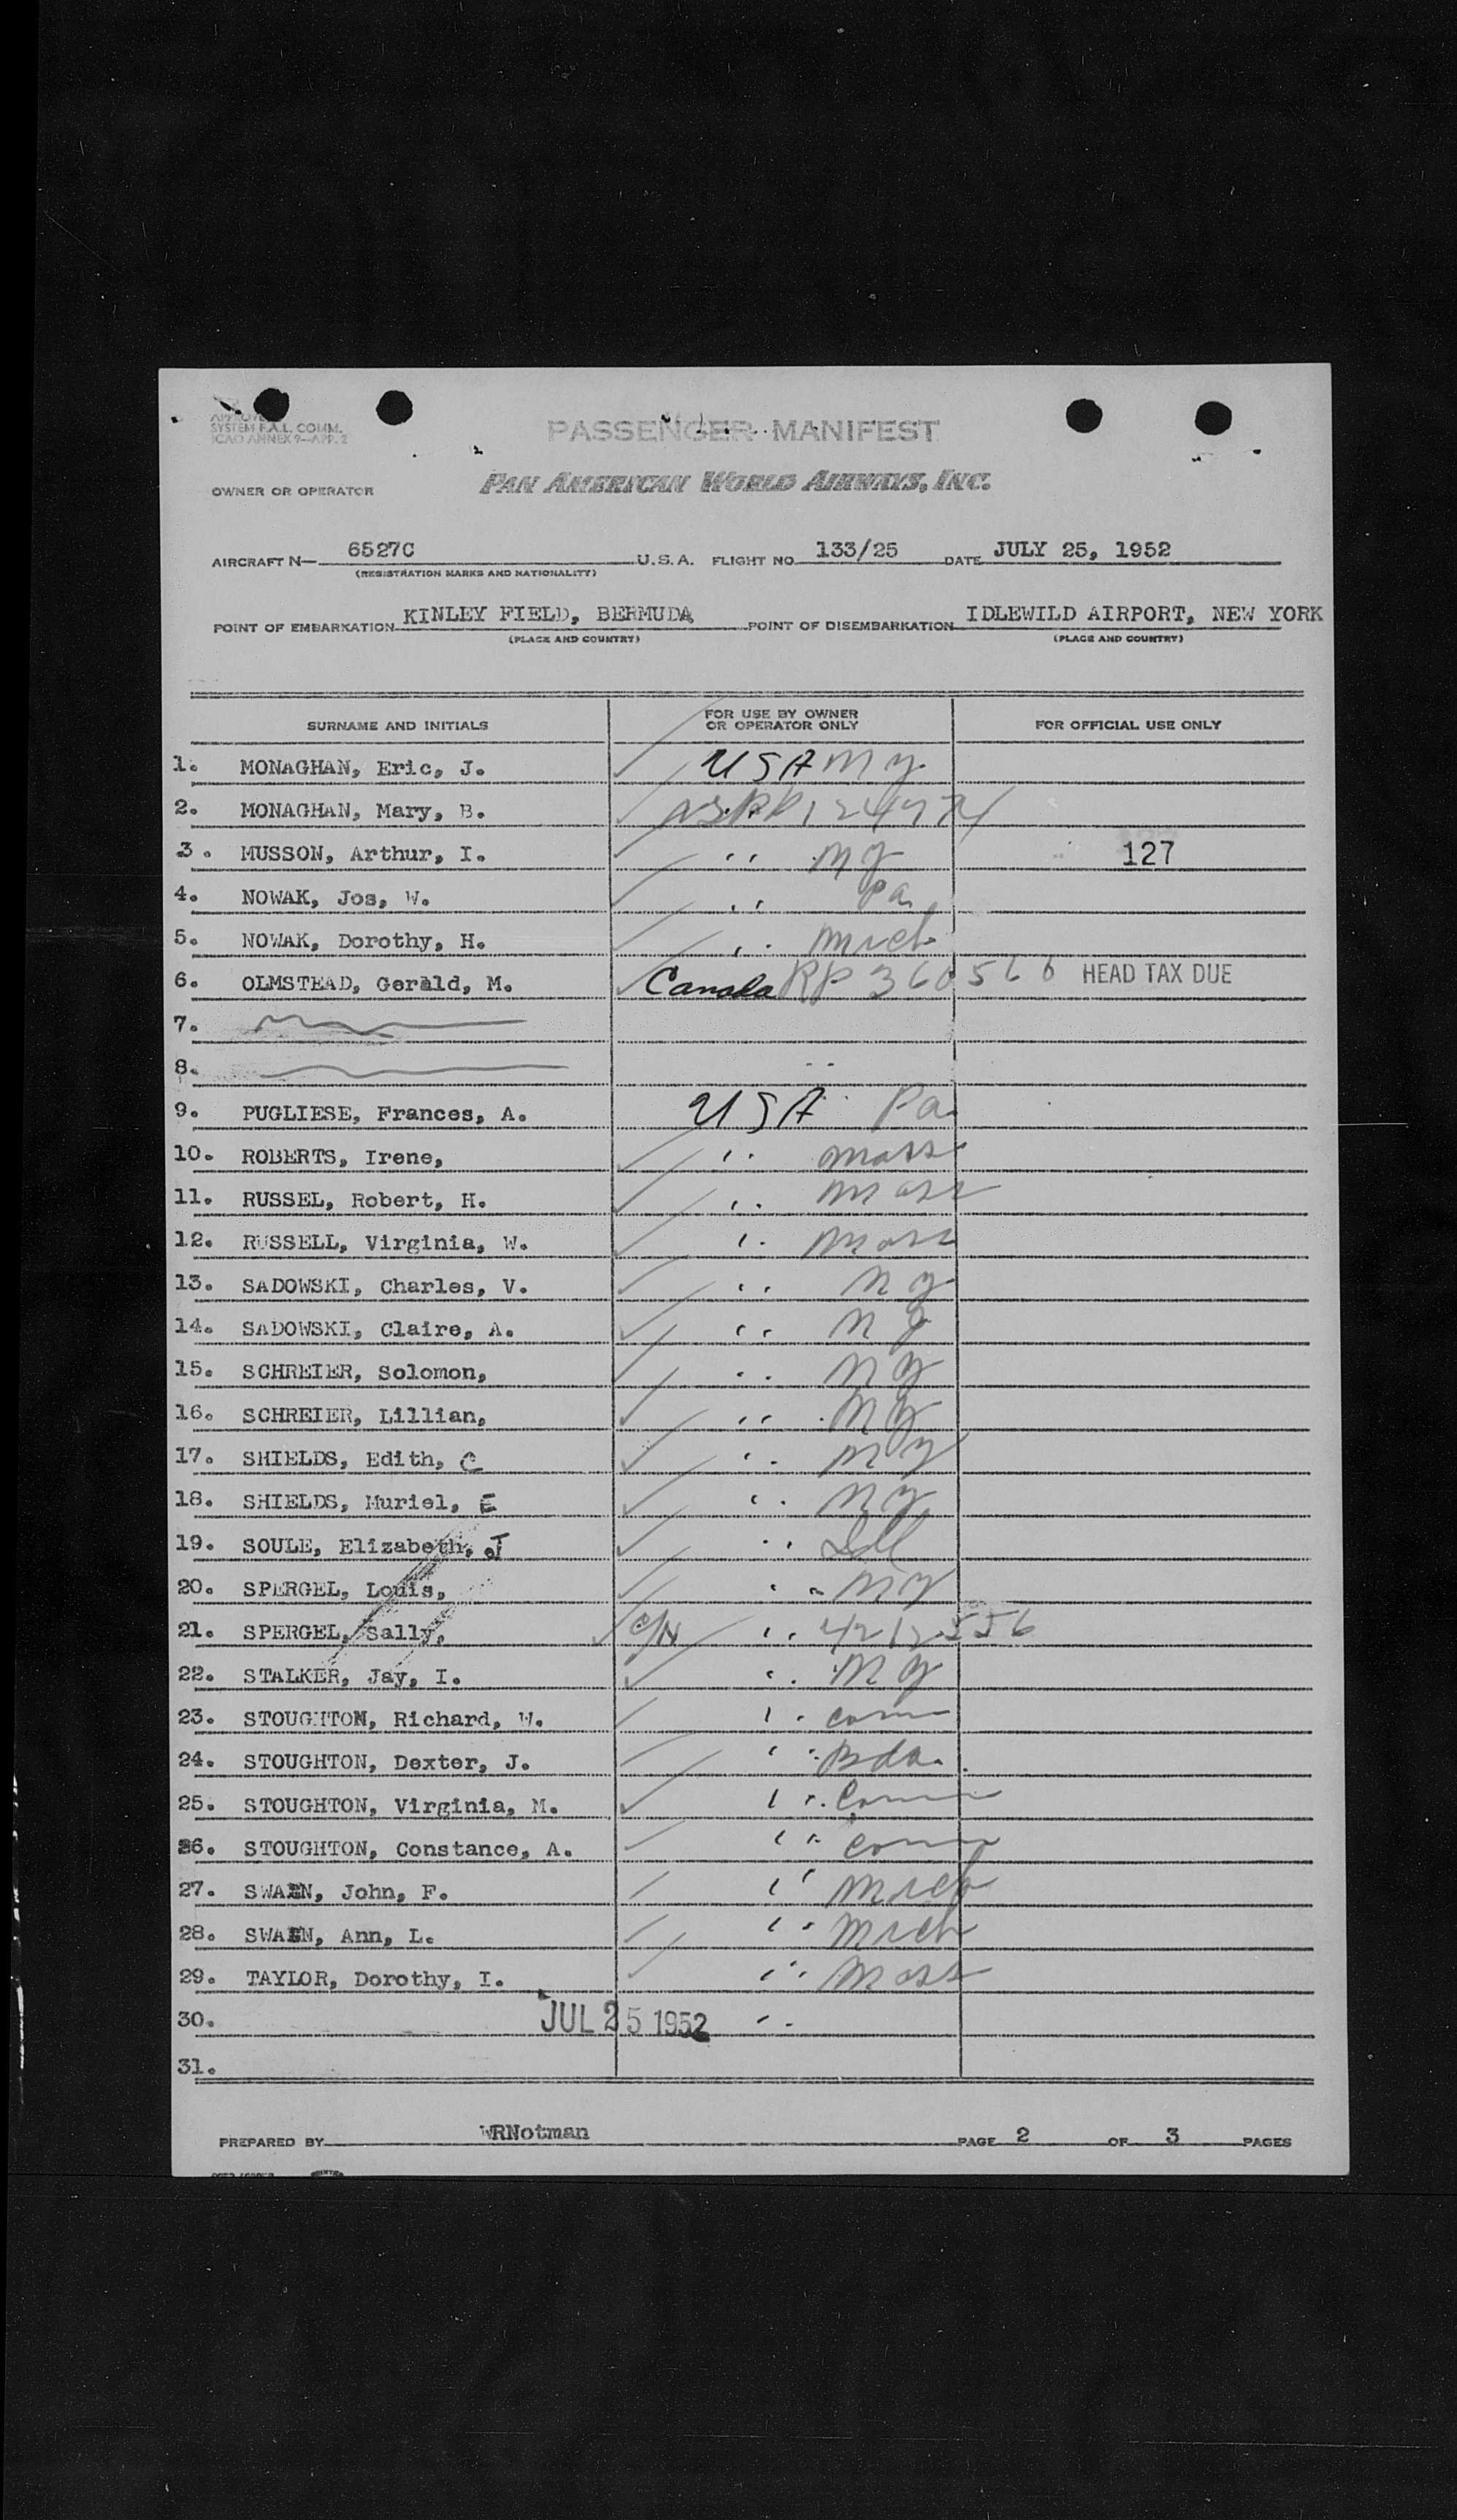 APPROVED
SYSTEM F.A.L. COMM.
ICAO ANNEX 9—APP. 2
PASSENGER MANIFEST
OWNER OR OPERATOR PAN AMERICAN WORLD AIRWAYS, INC.
AIRCRAFT N— 6527C U.S.A. FLIGHT NO. 133/25 DATE JULY 25, 1952
(REGISTRATION MARKS AND NATIONALITY)
POINT OF EMBARKATION KINLEY FIELD, BERMUDA POINT OF DISEMBARKATION IDLEWILD AIRPORT, NEW YORK
(PLACE AND COUNTRY) (PLACE AND COUNTRY)
SURNAME AND INITIALS FOR USE BY OWNER OR OPERATOR ONLY FOR OFFICIAL USE ONLY
1. MONAGHAN, Eric, J. USA N Y
2. MONAGHAN, Mary, B.
3. MUSSON, Arthur, I. " N Y 127
4. NOWAK, Jos, W. " Pa.
5. NOWAK, Dorothy, H. " Mich
6. OLMSTEAD, Gerald, M. Canada RP 360566 HEAD TAX DUE
7.
8.
9. PUGLIESE, Frances, A. USA Pa.
10. ROBERTS, Irene, " Mass
11. RUSSEL, Robert, H. " Mass
12. RUSSELL, Virginia, W. " Mass
13. SADOWSKI, Charles, V. " N Y
14. SADOWSKI, Claire, A. " N Y
15. SCHREIER, Solomon, " N Y
16. SCHREIER, Lillian, " N Y
17. SHIELDS, Edith, C " N Y
18. SHIELDS, Muriel, E " N Y
19. SOULE, Elizabeth, J " Ill
20. SPERGEL, Louis, " N Y
21. SPERGEL, Sally, C/N "
22. STALKER, Jay, I. " N Y
23. STOUGHTON, Richard, W. " Conn
24. STOUGHTON, Dexter, J. " Bda.
25. STOUGHTON, Virginia, M. " Conn
26. STOUGHTON, Constance, A. " Conn
27. SWAEN, John, F. " Mich
28. SWAEN, Ann, L. " Mich
29. TAYLOR, Dorothy, I. " Mass
30. JUL 25 1952 "
31.
PREPARED BY WRNotman PAGE 2 OF 3 PAGES